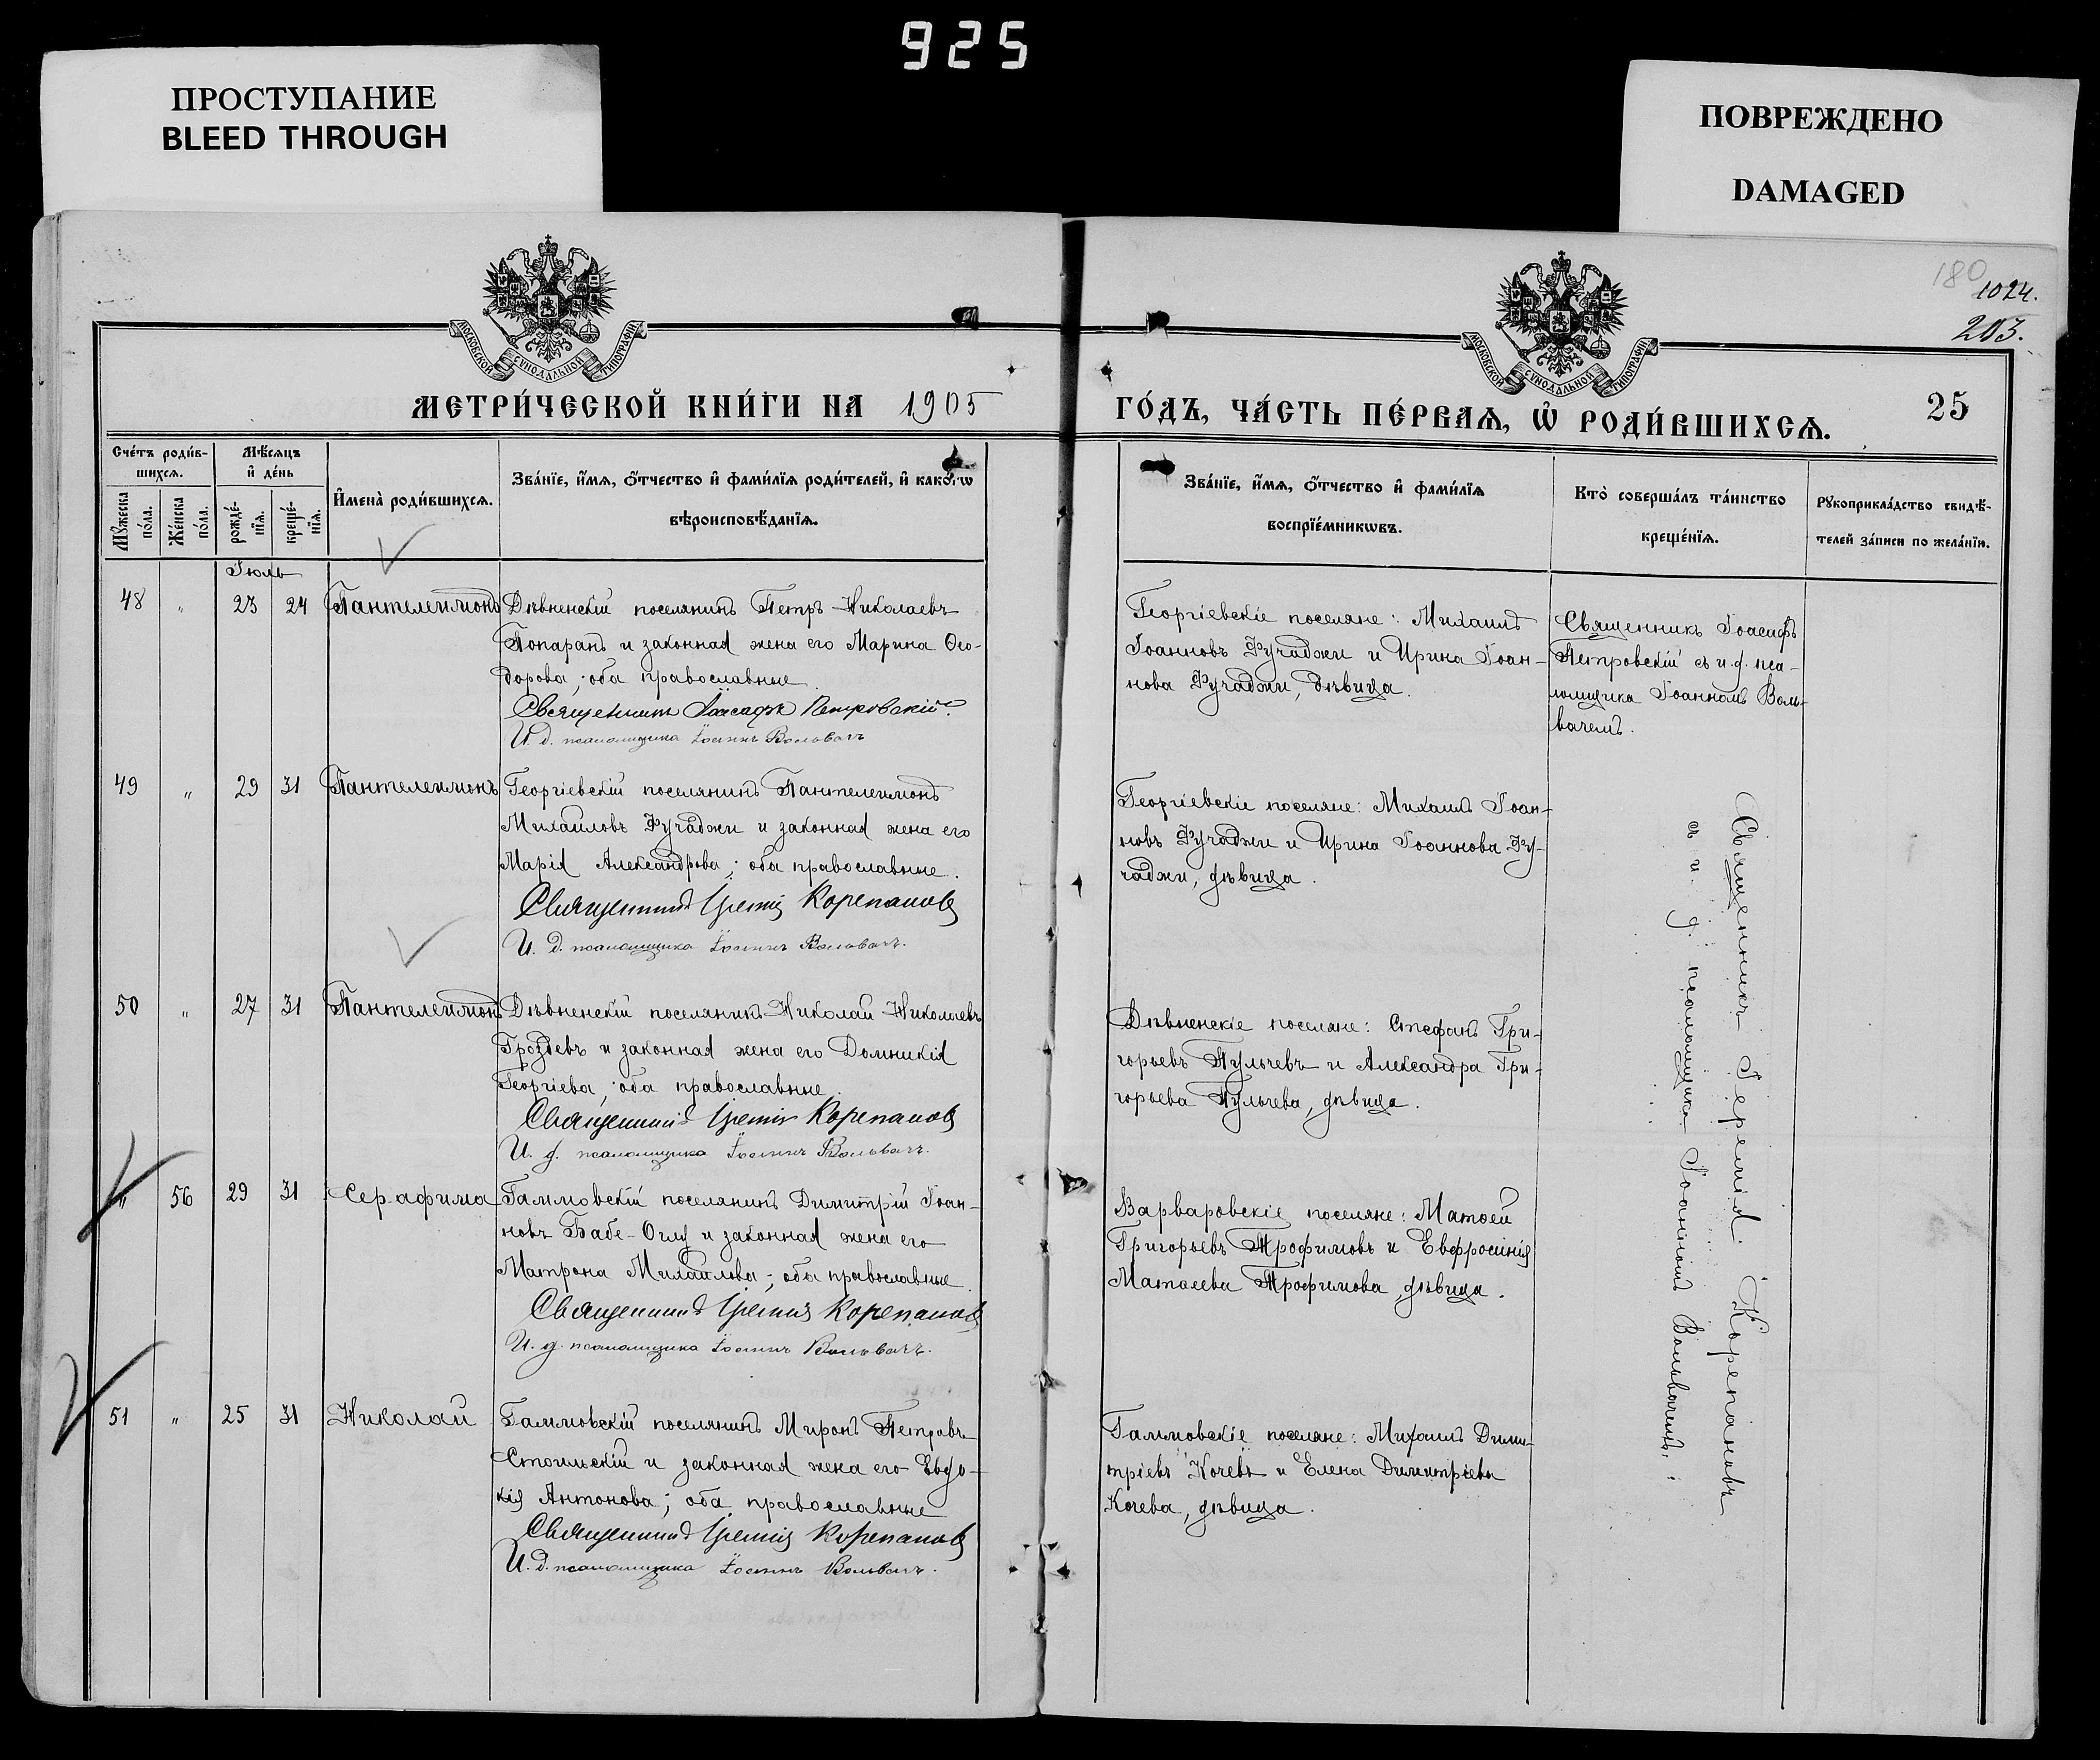 925
ПРОСТУПАНИЕ
BLEED THROUGH
ПОВРЕЖДЕНО
DAMAGED
180
1024.
203.
МОСКОВСКОЙ СѴНОДАЛЬНОЙ ТИПОГРАФІИ
МОСКОВСКОЙ СѴНОДАЛЬНОЙ ТИПОГРАФІИ
МЕТРИ́ЧЕСКОЙ КНИ́ГИ НА 1905
ГО́ДЪ, ЧА́СТЬ ПЕ́РВАѦ, Ѽ РОДИ́ВШИХСѦ.
25
Сче́тъ роди́в-
шихсѧ.
Мꙋ́жеска
по́ла.
Же́нска
по́ла.
Мѣ́сѧцъ
и҆ де́нь
рожде́-
нїѧ.
креще́-
нїѧ.
И҆мена̀ роди́вшихсѧ.
Зва́нїе, и҆́мѧ, ѻ҆́тчество и҆ фами́лїѧ роди́телей, и҆ како́гѡ
вѣроисповѣ́данїѧ.
Зва́нїе, и҆́мѧ, ѻ҆́тчество и҆ фами́лїѧ
воспрїе́мникѡвъ.
Кто̀ соверша́лъ та́инство
креще́нїѧ.
Рꙋкоприкла́дство свидѣ́-
телей за́писи по жела́нїю.
Іюль
48 " 23 24 Пантелеимонъ
Дѣвненскій поселянинъ Петръ Николаевъ
Попаранъ и законная жена его Марина Ѳео-
дорова; оба православные.
Священникъ Іоасафъ Петровскій.
И. д. псаломщика Іоаннъ Вольвачъ
Георгіевскіе поселяне: Михаилъ
Іоанновъ Фучаджи и Ирина Іоан-
нова Фучаджи, дѣвица.
Священникъ Іоасафъ
Петровскій съ и. д. пса-
ломщика Іоанномъ Воль-
вачемъ.
49 " 29 31 Пантелеимонъ
Георгіевскій поселянинъ Пантелеимонъ
Михаиловъ Фучаджи и законная жена его
Марія Александрова; оба православные.
Священникъ Іеремія Корепановъ
И. д. псаломщика Іоаннъ Вольвачъ.
Георгіевскіе поселяне: Михаилъ Іоан-
новъ Фучаджи и Ирина Іоаннова Фу-
чаджи, дѣвица.
50 " 27 31 Пантелеимонъ
Дѣвненскій поселянинъ Николай Николаевъ
Гроздевъ и законная жена его Домникія
Георгіева; оба православные.
Священникъ Іеремія Корепановъ
И. д. псаломщика Іоаннъ Вольвачъ.
Дѣвненскіе поселяне: Стефанъ Гри-
горьевъ Пульчевъ и Александра Гри-
горьева Пульчева, дѣвица.
" 56 29 31 Серафима
Галмовскій поселянинъ Димитрій Іоан-
новъ Бабе-Оглу и законная жена его
Матрона Михаилова; оба православные.
Священникъ Іеремія Корепановъ
И. д. псаломщика Іоаннъ Вольвачъ.
Варваровскіе поселяне: Матѳей
Григорьевъ Трофимовъ и Евфросинія
Матѳеева Трофимова, дѣвица.
51 " 25 31 Николай
Галмовскій поселянинъ Миронъ Петровъ
Стоильскій и законная жена его Евдо-
кія Антонова; оба православные
Священникъ Іеремія Корепановъ
И. д. псаломщика Іоаннъ Вольвачъ.
Галмовскіе поселяне: Михаилъ Дими-
тріевъ Кочевъ и Елена Димитріева
Кочева, дѣвица.
Священникъ Іеремія Корепановъ
съ и. д. псаломщика Іоанномъ Вольвачемъ.